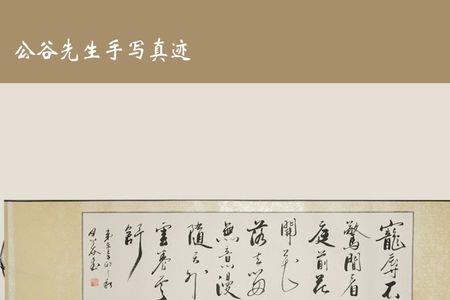 公谷先生手写真迹
寵辱不
驚閒看
庭前花
開花
落去留
無意漫
隨天外
雲卷雲
舒